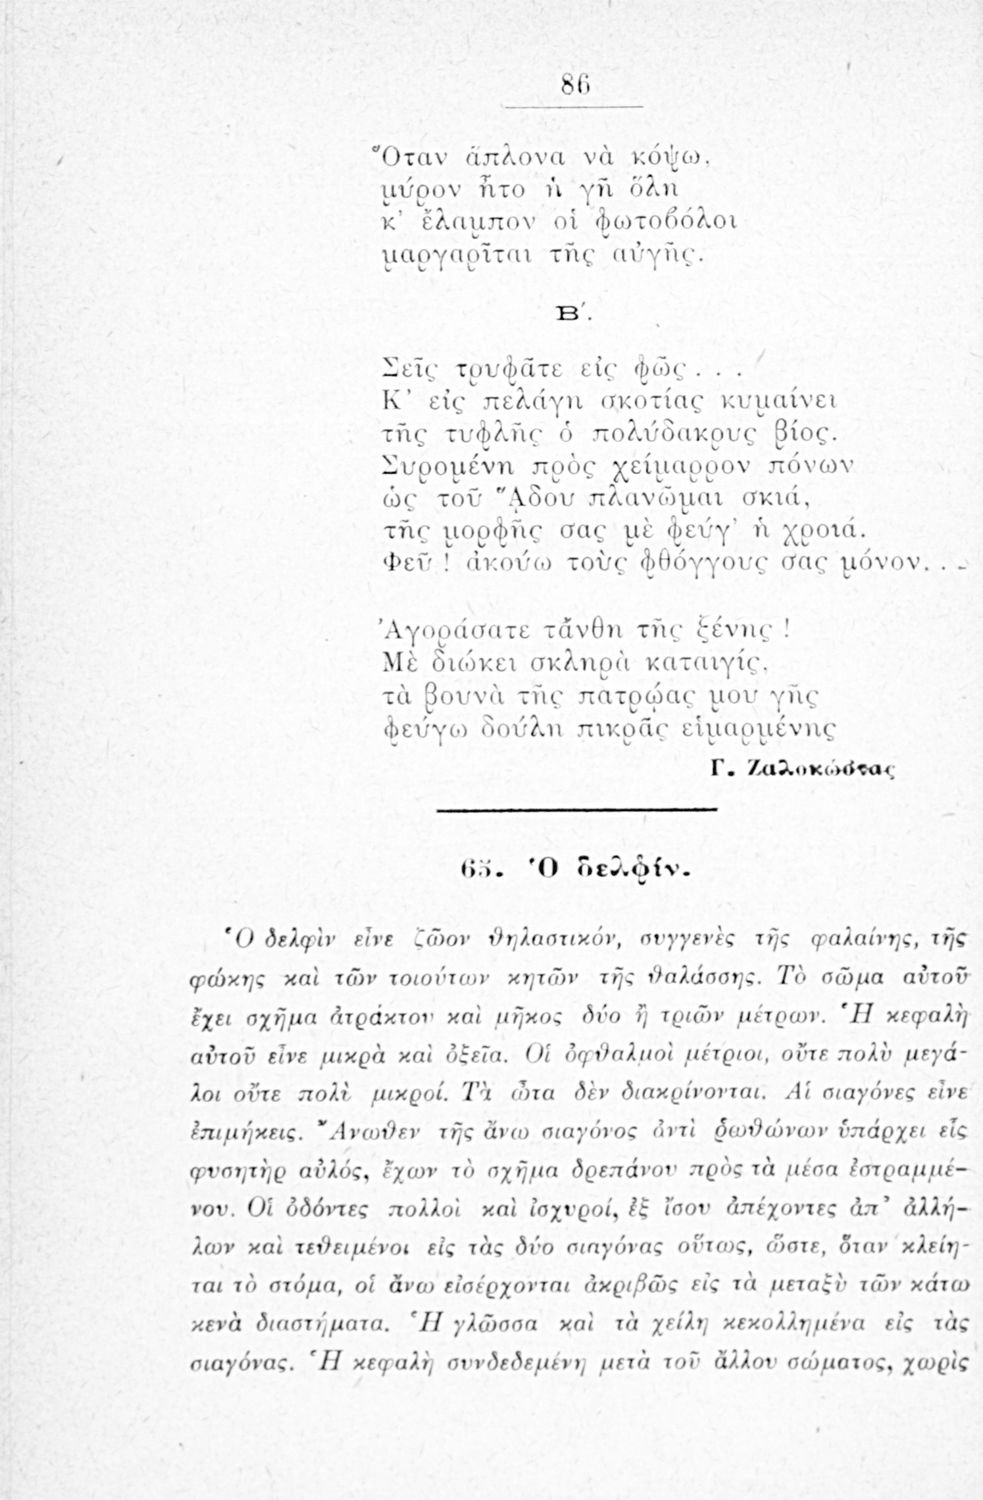 86
Ὅταν ἅπλονα νὰ κόψω,
μύρον ἦτο ἡ γῆ ὅλη
κ' ἔλαμπον οἱ φωτοβόλοι
μαργαρῖται τῆς αὐγῆς.
Β΄.
Σεῖς τρυφᾶτε εἰς φῶς . . .
Κ' εἰς πελάγη σκοτίας κυμαίνει
τῆς τυφλῆς ὁ πολύδακρυς βίος.
Συρομένη πρὸς χείμαρρον πόνων
ὡς τοῦ ᾍδου πλανῶμαι σκιά,
τῆς μορφῆς σας μὲ φεύγ' ἡ χροιά.
Φεῦ ! ἀκούω τοὺς φθόγγους σας μόνον. . .
Ἀγοράσατε τἄνθη τῆς ξένης !
Μὲ διώκει σκληρὰ καταιγίς,
τὰ βουνὰ τῆς πατρῴας μου γῆς
φεύγω δούλη πικρᾶς εἱμαρμένης
Γ. Ζαλοκώστας
65. Ὁ δελφίν.
Ὁ δελφὶν εἶνε ζῶον θηλαστικόν, συγγενὲς τῆς φαλαίνης, τῆς
φώκης καὶ τῶν τοιούτων κητῶν τῆς θαλάσσης. Τὸ σῶμα αὐτοῦ
ἔχει σχῆμα ἀτράκτου καὶ μῆκος δύο ἢ τριῶν μέτρων. Ἡ κεφαλὴ
αὐτοῦ εἶνε μικρὰ καὶ ὀξεῖα. Οἱ ὀφθαλμοὶ μέτριοι, οὔτε πολὺ μεγά-
λοι οὔτε πολὺ μικροί. Τὰ ὦτα δὲν διακρίνονται. Αἱ σιαγόνες εἶνε
ἐπιμήκεις. Ἄνωθεν τῆς ἄνω σιαγόνος ἀντὶ ῥωθώνων ὑπάρχει εἷς
φυσητὴρ αὐλός, ἔχων τὸ σχῆμα δρεπάνου πρὸς τὰ μέσα ἐστραμμέ-
νου. Οἱ ὀδόντες πολλοὶ καὶ ἰσχυροί, ἐξ ἴσου ἀπέχοντες ἀπ' ἀλλή-
λων καὶ τεθειμένοι εἰς τὰς δύο σιαγόνας οὕτως, ὥστε, ὅταν κλείη-
ται τὸ στόμα, οἱ ἄνω εἰσέρχονται ἀκριβῶς εἰς τὰ μεταξὺ τῶν κάτω
κενὰ διαστήματα. Ἡ γλῶσσα καὶ τὰ χείλη κεκολλημένα εἰς τὰς
σιαγόνας. Ἡ κεφαλὴ συνδεδεμένη μετὰ τοῦ ἄλλου σώματος, χωρὶς